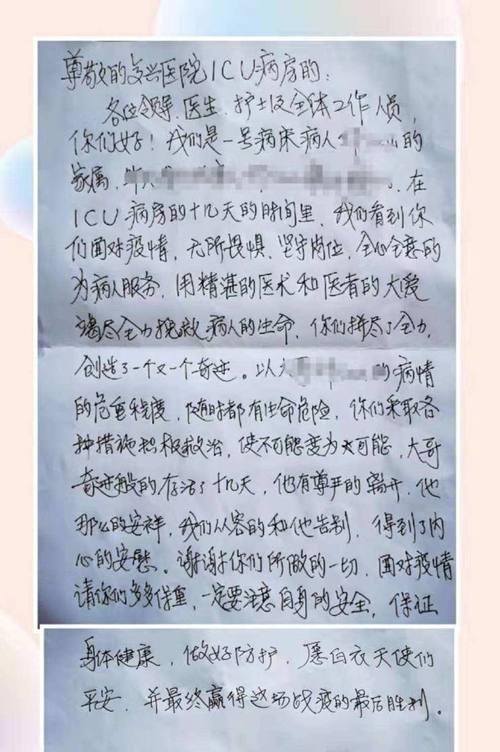 尊敬的复兴医院ICU病房的:
各位领导、医生、护士及全体工作人员,
你们好!我们是一号病床病人的
家属,在
ICU病房的十几天的时间里,我们看到你
们面对疫情,无所畏惧、坚守岗位,全心全意的
为病人服务,用精湛的医术和医者的大爱
竭尽全力拯救病人的生命,你们拼尽了全力,
创造了一个又一个奇迹。以大的病情
的危重程度,随时都有生命危险,你们采取各
种措施积极救治,使不可能变为大可能,大哥
奇迹般的存活了十几天,他有尊严的离开,他
那么的安祥,我们从容的和他告别,得到了内
心的安慰。谢谢你们所做的一切,面对疫情
请你们多多保重,一定要注意自身的安全,保证
身体健康,做好防护,愿白衣天使们
平安,并最终赢得这场战疫的最后胜利。